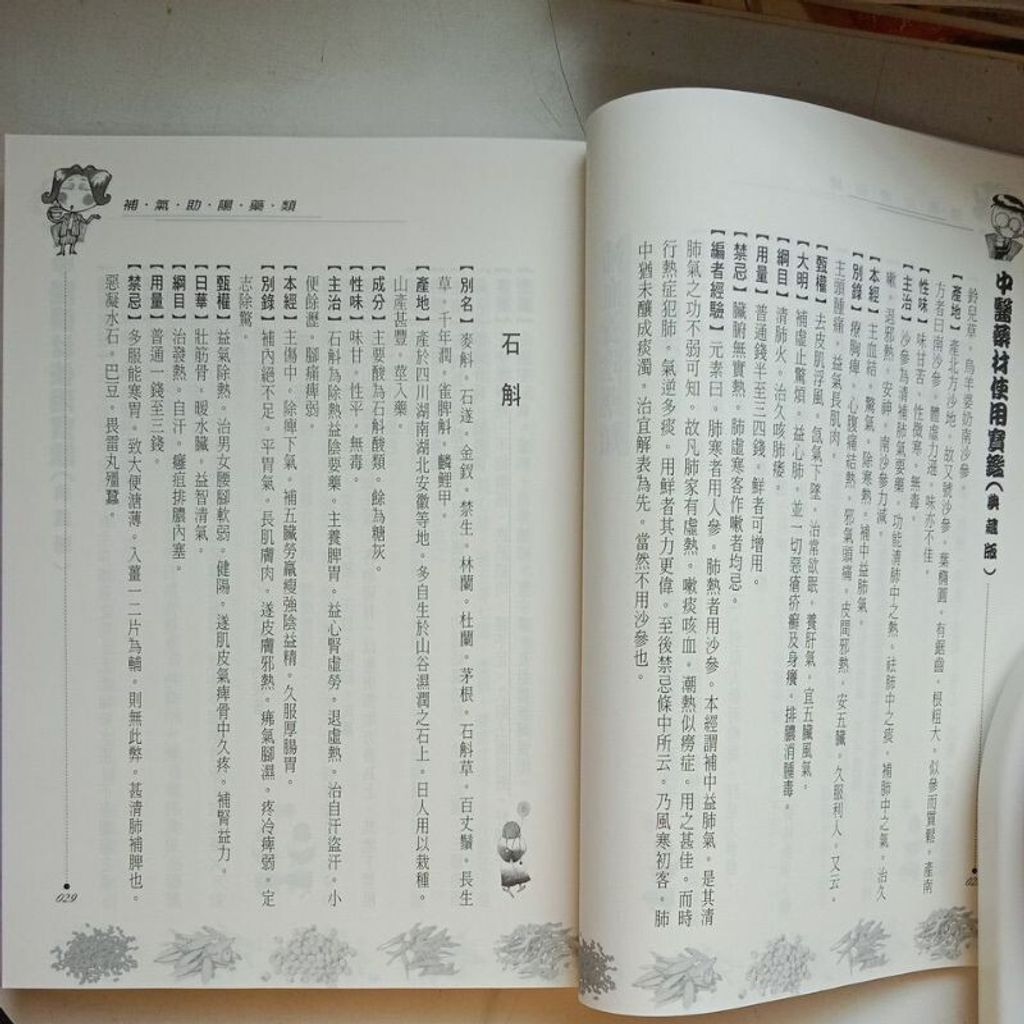 中醫藥材使用寶鑑(典藏版)
鈴兒草。烏羊婆奶南沙參。
【產地】產北方沙地。故又號沙參。葉橢圓。有鋸齒。根粗大。似參而質鬆。產南
方者曰南沙參。體虛力遜。味亦不佳。
【性味】味甘苦。性微寒。無毒。
【主治】沙參為清補肺氣要藥。功能清肺中之熱。祛肺中之痰。補肺中之氣。治久
嗽。退邪熱。安神。南沙參力減。
【本經】主血結。驚氣。除寒熱。補中益肺氣。
【別錄】療胸痺。心腹痛結熱。邪氣頭痛。皮間邪熱。安五臟。久服利人。又云。
主頭腫痛。益氣長肌肉。
【甄權】去皮肌浮風。氙氣下墜。治常欲眠。養肝氣。宜五臟風氣。
【大明】補虛止驚煩。益心肺。並一切惡瘡疥癬及身癢。排膿消腫毒。
【綱目】清肺火。治久咳肺痿。
【用量】普通錢半至三四錢。鮮者可增用。
【禁忌】臟腑無實熱。肺虛寒客作嗽者均忌。
【編者經驗】元素曰。肺寒者用人參。肺熱者用沙參。本經謂補中益肺氣。是其清
肺氣之功不弱可知。故凡肺家有虛熱。嗽痰咳血。潮熱似癆症。用之甚佳。而時
行熱症犯肺。氣逆多痰。用鮮者其力更偉。至後禁忌條中所云。乃風寒初客。肺
中猶未釀成痰濁。治宜解表為先。當然不用沙參也。
補・氣・助・陽・藥・類
石斛
【別名】麥斛。石遂。金釵。禁生。林蘭。杜蘭。茅根。石斛草。百丈鬚。長生
草。千年潤。雀脾斛。麟鯉甲。
【產地】產於四川湖南湖北安徽等地。多自生於山谷濕潤之石上。日人用以栽種。
山產甚豐。莖入藥。
【成分】主要酸為石斛酸類。餘為糖灰。
【性味】味甘。性平。無毒。
【主治】石斛為除熱益陰要藥。主養脾胃。益心腎虛勞。退虛熱。治自汗盜汗。小
便餘瀝。腳痛痺弱。
【本經】主傷中。除痺下氣。補五臟勞羸瘦強陰益精。久服厚腸胃。
【別錄】補內絕不足。平胃氣。長肌膚肉。遂皮膚邪熱。痱氣腳濕。疼冷痺弱。定
志除驚。
【甄權】益氣除熱。治男女腰腳軟弱。健陽。遂肌皮氣痺骨中久疼。補腎益力。
【日華】壯筋骨。暖水臟。益智清氣。
【綱目】治發熱。自汗。癰疽排膿內塞。
【用量】普通一錢至三錢。
【禁忌】多服能寒胃。致大便溏薄。入薑一二片為輔。則無此弊。甚清肺補脾也。
惡凝水石。巴豆。畏雷丸殭蠶。
029